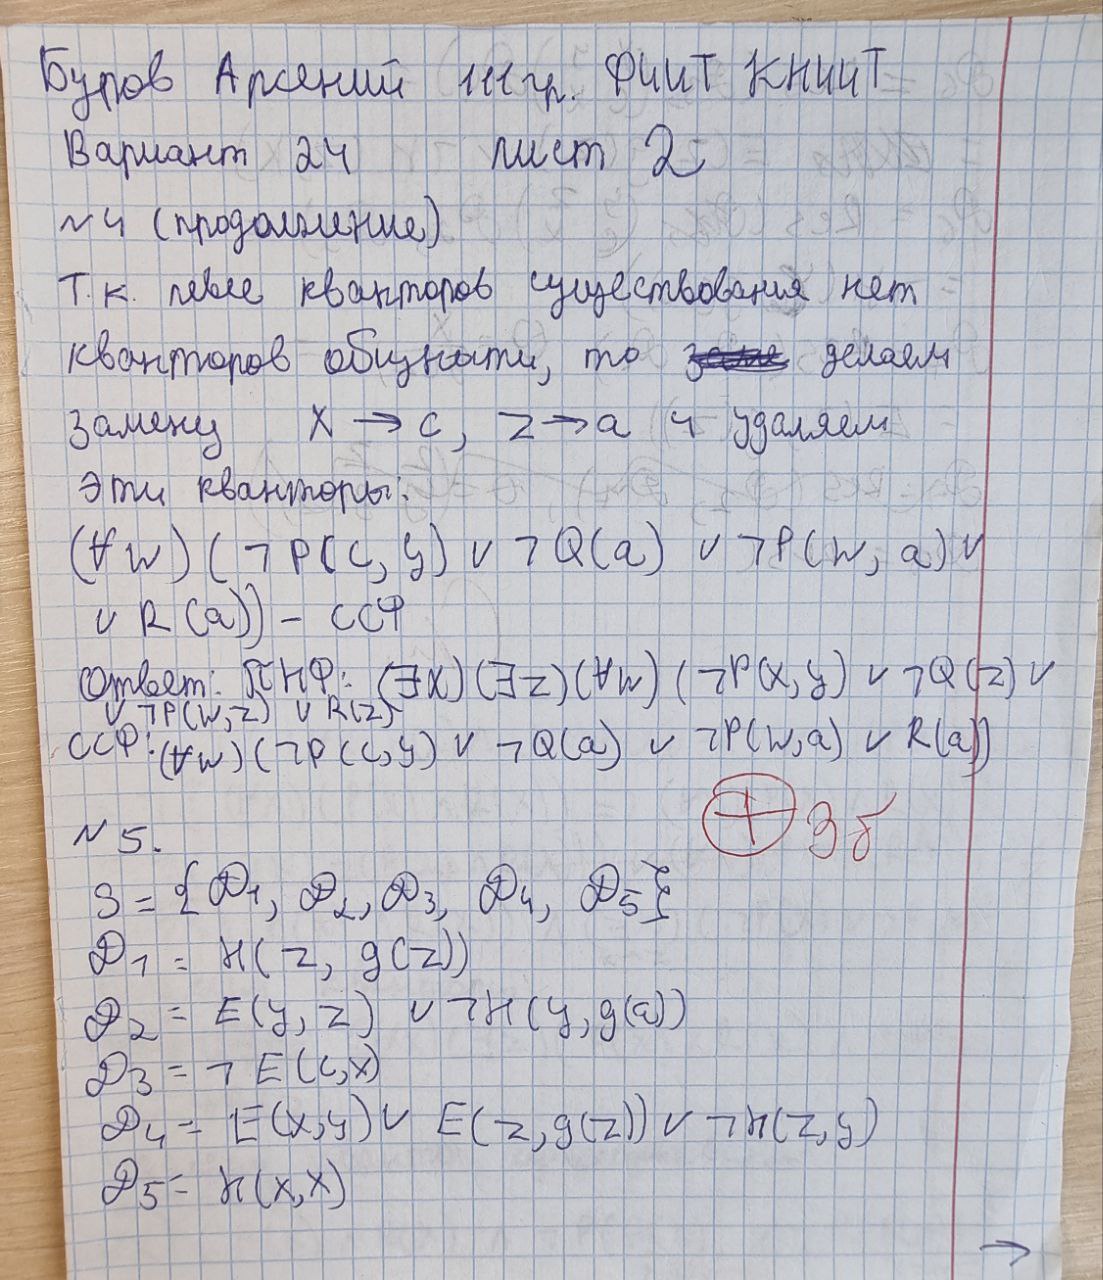 Буров Арсений 111 гр. ФИИТ КНИИТ
Вариант 24 лист 2
№4 (продолжение)
Т.к. левее кванторов существования нет
кванторов общности, то делаем
замену x → c, z → a и удаляем
эти кванторы:
(∀w) (¬P(c, y) ∨ ¬Q(a) ∨ ¬P(w, a) ∨
∨ R(a)) – ССФ
Ответ: ПНФ: (∃x)(∃z)(∀w) (¬P(x, y) ∨ ¬Q(z) ∨
∨ ¬P(w, z) ∨ R(z)
ССФ: (∀w)(¬P(c, y) ∨ ¬Q(a) ∨ ¬P(w, a) ∨ R(a))
+ 3 б
№5.
S = {D1, D2, D3, D4, D5}
D1 = H(z, g(z))
D2 = E(y, z) ∨ ¬H(y, g(a))
D3 = ¬E(c, x)
D4 = E(x, y) ∨ E(z, g(z)) ∨ ¬H(z, y)
D5 = H(x, x)
→